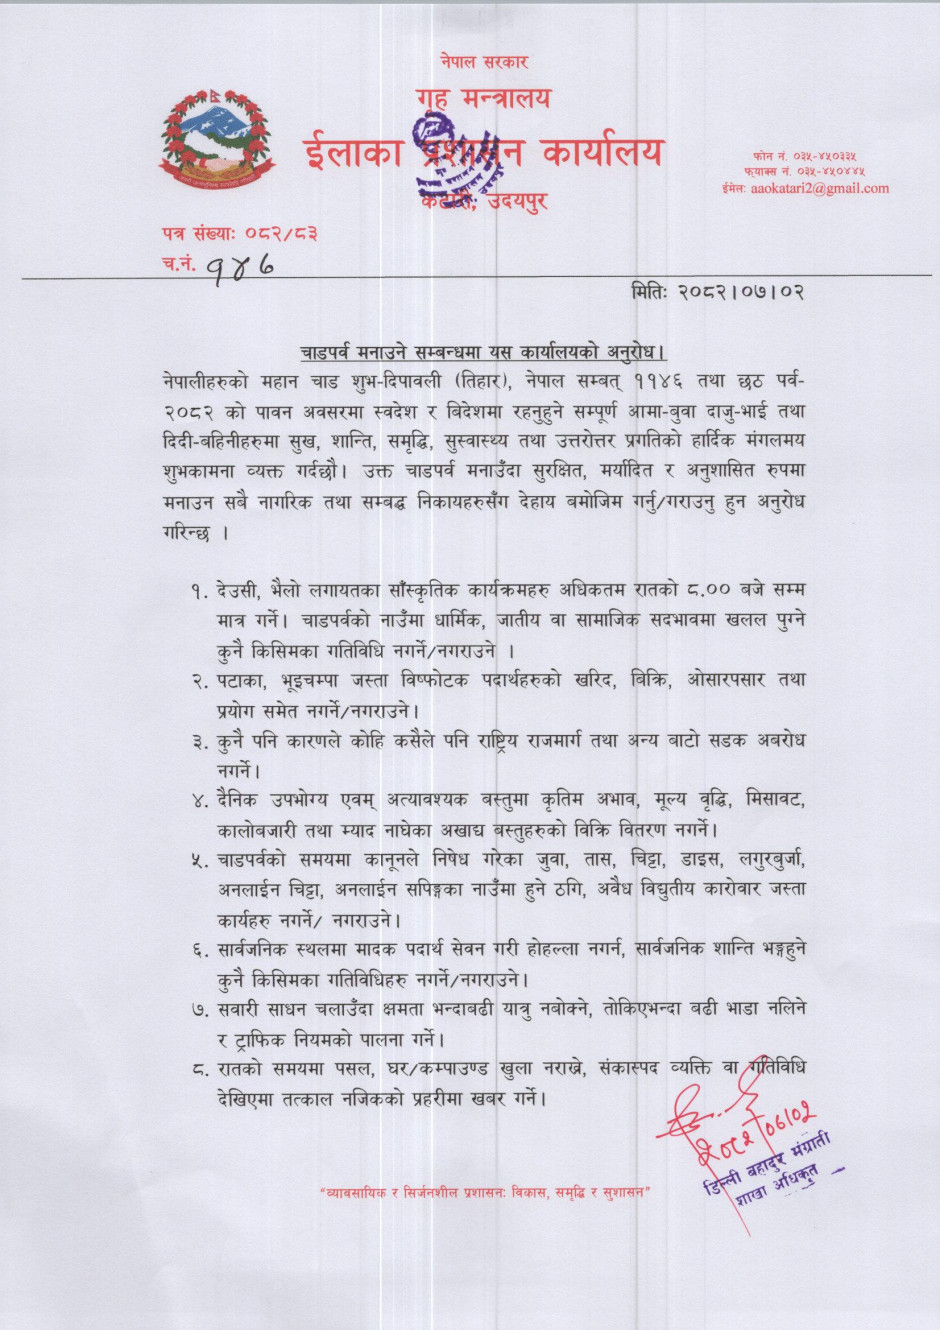 नेपाल सरकार
गृह मन्त्रालय
ईलाका प्रशासन कार्यालय
कटारी, उदयपुर
फोन नं. ०३५-४५०३३५
फ्याक्स नं. ०३५-४५०४४५
ईमेल: aaokatari2@gmail.com
पत्र संख्याः ०८२/८३
च.नं. १४७
मितिः २०८२।०७।०२
चाडपर्व मनाउने सम्बन्धमा यस कार्यालयको अनुरोध।
नेपालीहरुको महान चाड शुभ-दिपावली (तिहार), नेपाल सम्बत् ११४६ तथा छठ पर्व-
२०८२ को पावन अवसरमा स्वदेश र बिदेशमा रहनुहुने सम्पूर्ण आमा-बुवा दाजु-भाई तथा
दिदी-बहिनीहरुमा सुख, शान्ति, समृद्धि, सुस्वास्थ्य तथा उत्तरोत्तर प्रगतिको हार्दिक मंगलमय
शुभकामना व्यक्त गर्दछौ। उक्त चाडपर्व मनाउँदा सुरक्षित, मर्यादित र अनुशासित रुपमा
मनाउन सबै नागरिक तथा सम्बद्ध निकायहरुसँग देहाय बमोजिम गर्नु/गराउनु हुन अनुरोध
गरिन्छ ।
१. देउसी, भैलो लगायतका साँस्कृतिक कार्यक्रमहरु अधिकतम रातको ८.०० बजे सम्म
मात्र गर्ने। चाडपर्वको नाउँमा धार्मिक, जातीय वा सामाजिक सदभावमा खलल पुग्ने
कुनै किसिमका गतिविधि नगर्ने/नगराउने ।
२. पटाका, भूइचम्पा जस्ता विष्फोटक पदार्थहरुको खरिद, विक्रि, ओसारपसार तथा
प्रयोग समेत नगर्ने/नगराउने।
३. कुनै पनि कारणले कोहि कसैले पनि राष्ट्रिय राजमार्ग तथा अन्य बाटो सडक अबरोध
नगर्ने।
४. दैनिक उपभोग्य एवम् अत्यावश्यक बस्तुमा कृतिम अभाव, मूल्य वृद्धि, मिसावट,
कालोबजारी तथा म्याद नाघेका अखाद्य बस्तुहरुको विक्रि वितरण नगर्ने।
५. चाडपर्वको समयमा कानूनले निषेध गरेका जुवा, तास, चिट्टा, डाइस, लगुरबुर्जा,
अनलाईन चिट्टा, अनलाईन सपिङ्गका नाउँमा हुने ठगि, अवैध विद्युतीय कारोवार जस्ता
कार्यहरु नगर्ने/ नगराउने।
६. सार्वजनिक स्थलमा मादक पदार्थ सेवन गरी होहल्ला नगर्न, सार्वजनिक शान्ति भङ्गहुने
कुनै किसिमका गतिविधिहरु नगर्ने/नगराउने।
७. सवारी साधन चलाउँदा क्षमता भन्दाबढी यात्रु नबोक्ने, तोकिएभन्दा बढी भाडा नलिने
र ट्राफिक नियमको पालना गर्ने।
८. रातको समयमा पसल, घर/कम्पाउण्ड खुला नराख्ने, संकास्पद व्यक्ति वा गतिविधि
देखिएमा तत्काल नजिकको प्रहरीमा खबर गर्ने।
२०८२/०७/०२
डिल्ली बहादुर मंग्राती
शाखा अधिकृत
"व्यावसायिक र सिर्जनशील प्रशासनः विकास, समृद्धि र सुशासन"